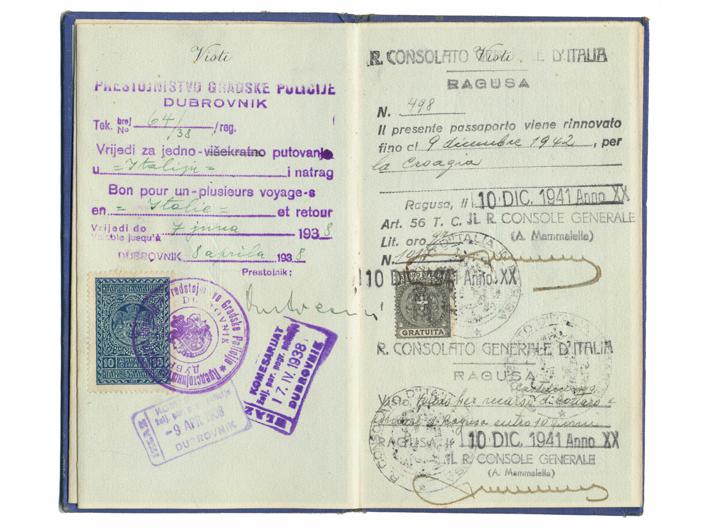 Viste
PREDSTOJNIŠTVO GRADSKE POLICIJE
DUBROVNIK
Tek. broj No 64/38 /reg.
Vrijedi za jedno-višekratno putovanje
u =Italiju= i natrag
Bon pour un-plusieurs voyage-s
en =Italie= et retour
Vrijedi do
Valable jusqu'à 7 juna 1938
DUBROVNIK 8 aprila 1938
Prestojnik:
10 10
DUBROVNIK
KOMESARIJAT
17. IV. 1938.
DUBROVNIK
ULAZ
-9 APR 1938
DUBROVNIK
R. CONSOLATO GENERALE D'ITALIA
Viste
RAGUSA
N. 498
Il presente passaporto viene rinnovato
fino al 9 dicembre 1942, per
la Croazia
Ragusa, li 10 DIC. 1941 Anno XX
Art. 56 T. C. IL R. CONSOLE GENERALE
Lit. oro (A. Mammalella)
N.
10 DIC. 1941 Anno XX
GRATUITA
R. CONSOLATO GENERALE D'ITALIA
RAGUSA
Visto
di Ragusa entro 10 giorni
RAGUSA, li 10 DIC. 1941 Anno XX
IL R. CONSOLE GENERALE
(A. Mammalella)